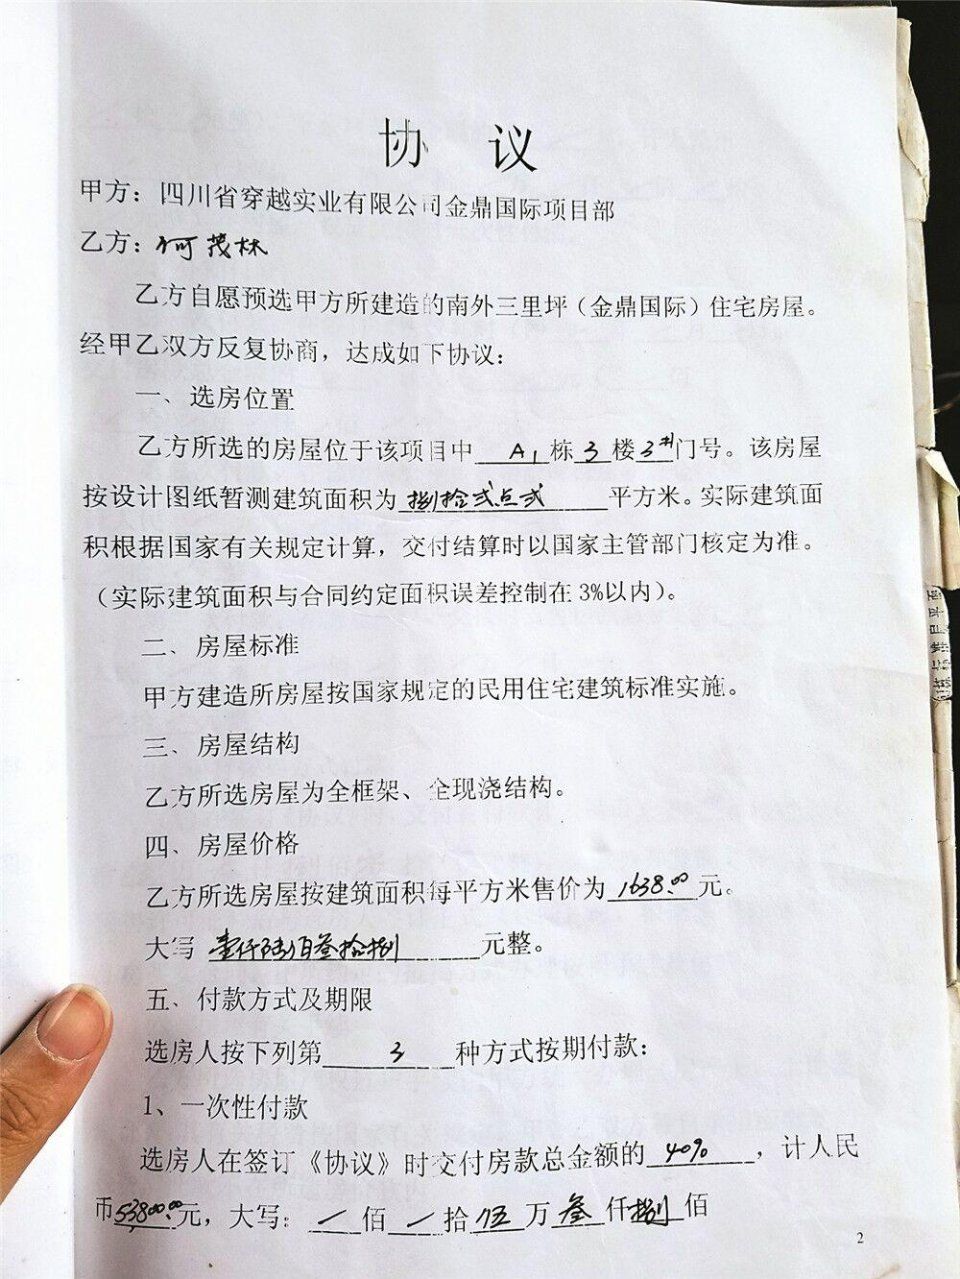 协 议
甲方：四川省穿越实业有限公司金鼎国际项目部
乙方：何茂林
乙方自愿预选甲方所建造的南外三里坪（金鼎国际）住宅房屋。
经甲乙双方反复协商，达成如下协议：
一、选房位置
乙方所选的房屋位于该项目中 A1 栋 3 楼 3# 门号。该房屋
按设计图纸暂测建筑面积为 捌拾贰点贰 平方米。实际建筑面
积根据国家有关规定计算，交付结算时以国家主管部门核定为准。
（实际建筑面积与合同约定面积误差控制在3%以内）。
二、房屋标准
甲方建造所房屋按国家规定的民用住宅建筑标准实施。
三、房屋结构
乙方所选房屋为全框架、全现浇结构。
四、房屋价格
乙方所选房屋按建筑面积每平方米售价为 1638.00 元。
大写 壹仟陆佰叁拾捌 元整。
五、付款方式及期限
选房人按下列第 3 种方式按期付款：
1、一次性付款
选房人在签订《协议》时交付房款总金额的 40% ，计人民
币 53800.00 元，大写： / 佰 / 拾 伍 万 叁 仟 捌 佰
2